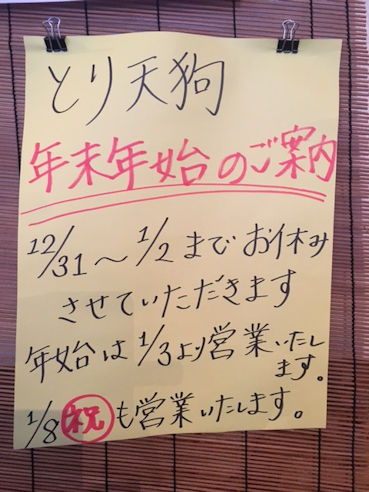 とり天狗
年末年始のご案内
12/31〜1/2までお休み
させていただきます
年始は1/3より営業いたし
ます。
1/8祝も営業いたします。